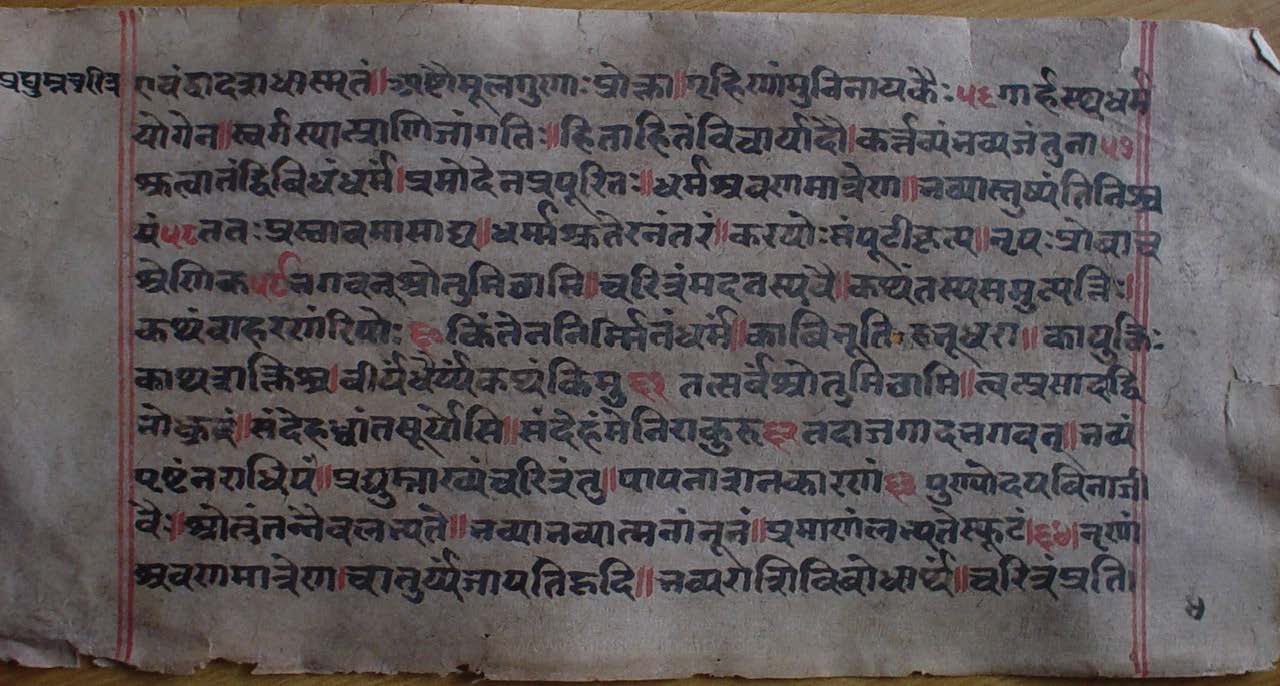 प्रद्युम्नचरीत्र
रावंद्वादशधास्मृतं॥अष्टौमूलगुणाःप्रोक्ता॥गृहिणांमुनिनायकैः५६गार्हस्थ्यधर्म
योगेन॥स्वर्गस्यात्प्राणिनांगतिः॥हिताहितंविचार्यादौ।कर्त्तव्यंभव्यजंतुना५७
श्रुत्वातंद्विविधंधर्मं।प्रमोदेनप्रपूरितः॥धर्मश्रवणमात्रेण॥भव्यास्तुष्यंतिनिश्च
यं५८ततःप्रस्तावमासाद्य॥धर्म्मश्रुतेरनंतरं॥करयोःसंपूटीकृत्य॥नृपःप्रोवाच
श्रेणिक५९भगवन्श्रोतुमिछामि॥चरित्रंमदनस्यवै॥कथंतस्यसमुत्पत्तिः।
कथंवाहरणंरिपोः६०किंतेननिर्म्मितंधर्मं॥काविभूतिःरुनूधरा॥कायुक्तिः
काथशक्तिश्च।वीर्यंधैर्य्यंकथंकिमु६१तत्सर्वंश्रोतुमिछामि॥त्वत्प्रसादाद्वि
भोध्रुवं॥संदेहध्वांतसूर्योसि॥संदेहंमेनिराकुरु६२तदाजगादभगवन्॥भव्यं
पृष्टंनराधिप॥प्रद्युम्नाख्यंचरित्रंतु॥पापनाशनकारणं६३पुण्योदयविनाजी
वैः॥श्रोतुंतन्नैवलभ्यते॥भव्याभव्यात्मनांनूनं॥प्रमाणंलभ्यतेस्फुटं।६४।नृणां
श्रवणमात्रेण।चातुर्य्यंजायतेहृदि॥भव्यराशिविबोधार्थं॥चरित्रंप्रति।
५